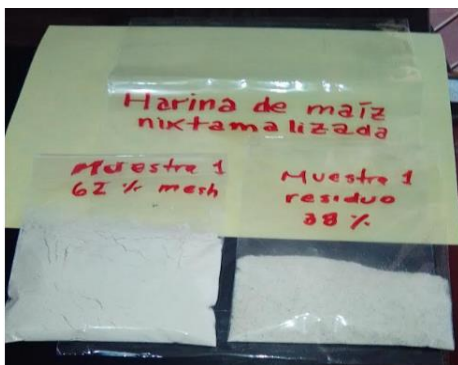 Harina de maíz
nixtamalizada
Muestra 1
62 % mesh
Muestra 1
residuo
38 %